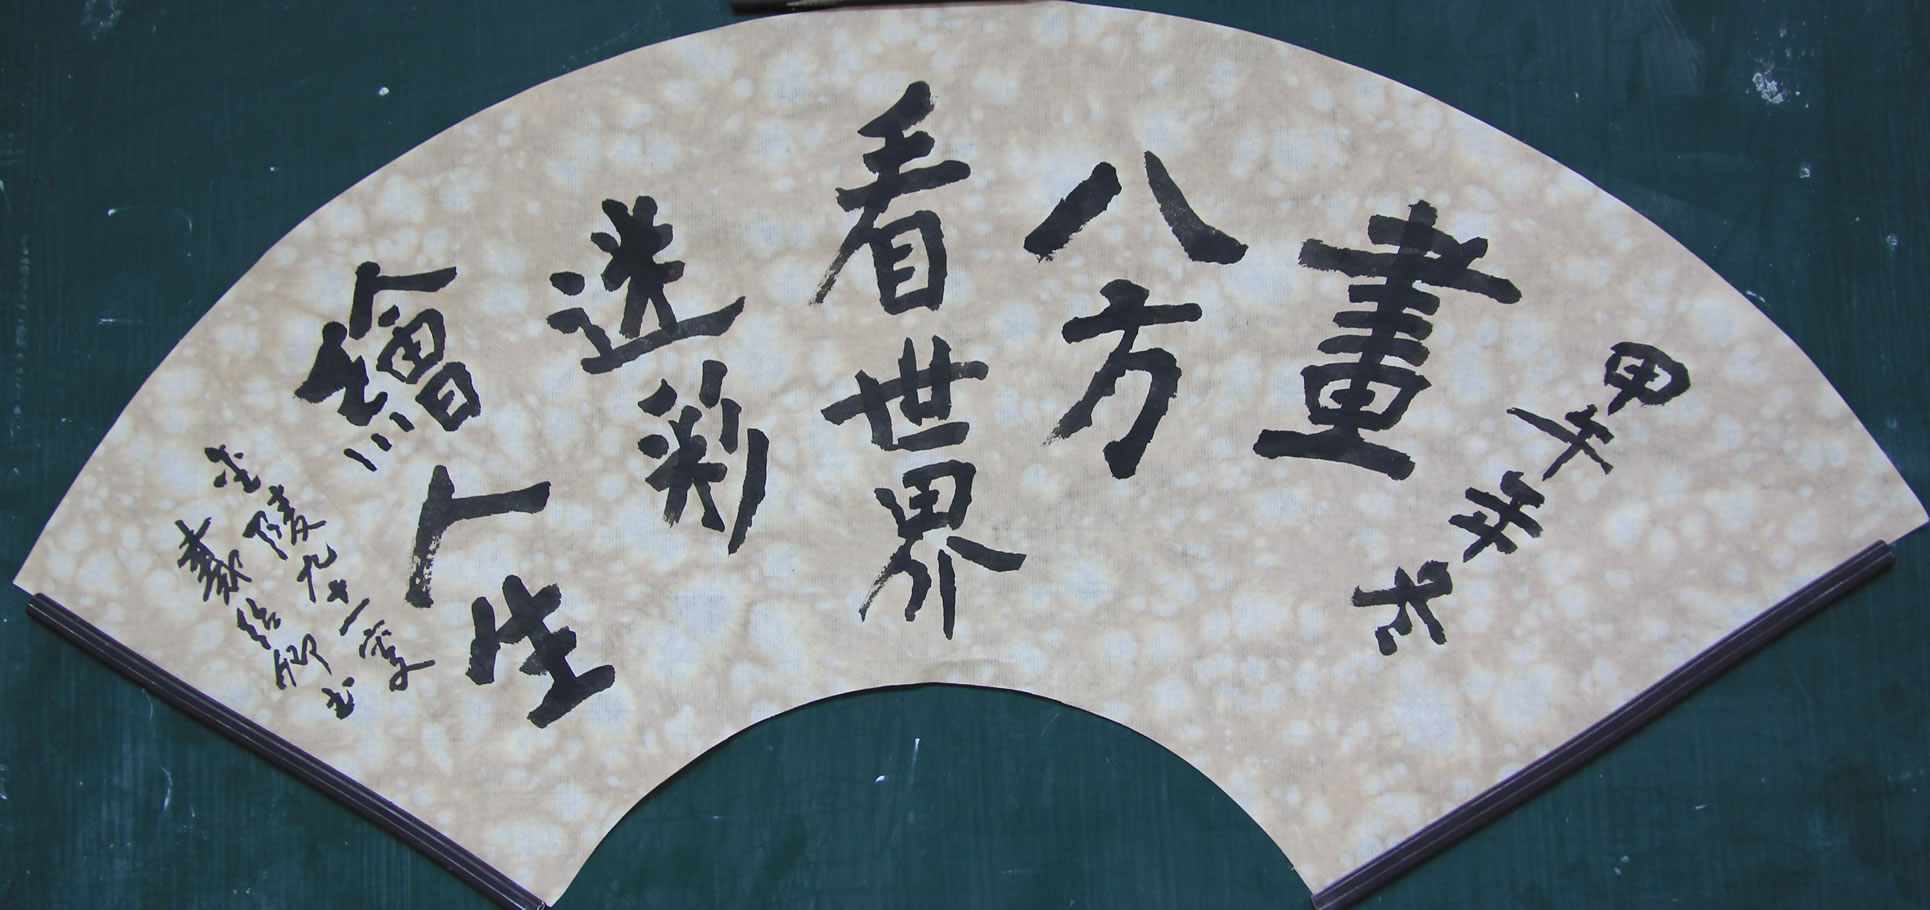 甲午年
畫
八方
看世界
迷彩
繪人生
金陵九十一叟
卿书